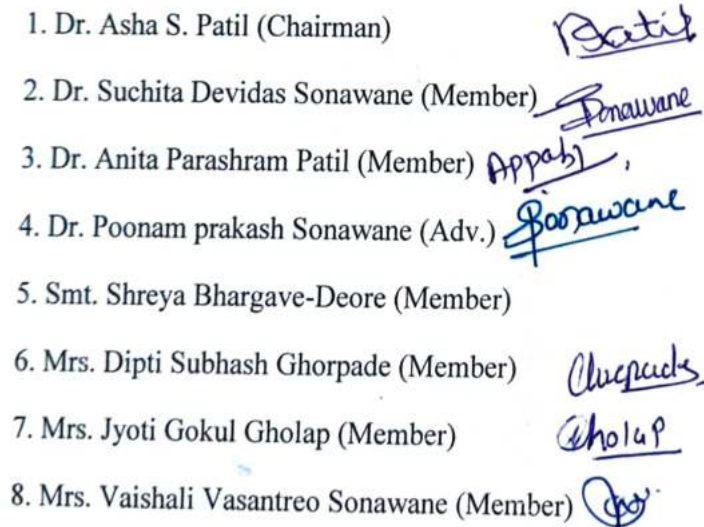 1. Dr. Asha S. Patil (Chairman)
2. Dr. Suchita Devidas Sonawane (Member) Sonawane
3. Dr. Anita Parashram Patil (Member)
4. Dr. Poonam prakash Sonawane (Adv.) Sonawane
5. Smt. Shreya Bhargave-Deore (Member)
6. Mrs. Dipti Subhash Ghorpade (Member)
7. Mrs. Jyoti Gokul Gholap (Member) Gholap
8. Mrs. Vaishali Vasantreo Sonawane (Member)